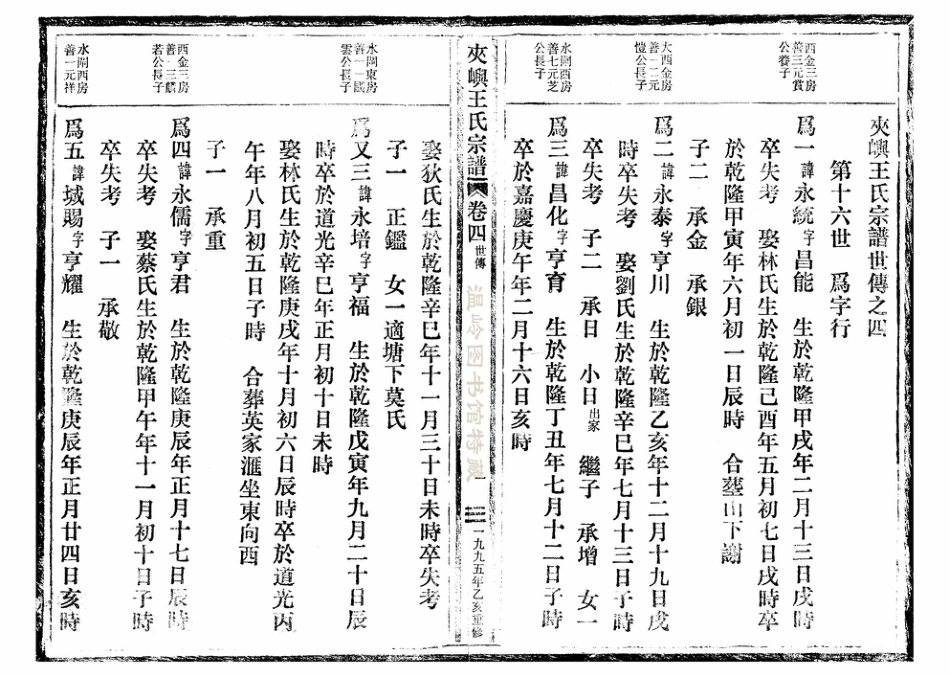 夾嶼王氏宗譜世傳之四
第十六世 爲字行
西金三房
善三元賞
公養子
爲一諱永統字昌能 生於乾隆甲戌年二月十三日戌時
卒失考 娶林氏生於乾隆己酉年五月初七日戌時卒
於乾隆甲寅年六月初一日辰時 合塟山下謝
子二 承金 承銀
大西金房
善一二元
愷公長子
爲二諱永泰字亨川 生於乾隆乙亥年十二月十九日戌
時卒失考 娶劉氏生於乾隆辛巳年七月十三日子時
卒失考 子二 承日 小日出家 繼子 承增 女一
水閘西房
善七元芝
公長子
爲三諱昌化字亨育 生於乾隆丁丑年七月十二日子時
卒於嘉慶庚午年二月十六日亥時
夾嶼王氏宗譜 卷四世傳
一 三 一九九五年乙亥重修
温岭图书馆特藏
娶狄氏生於乾隆辛巳年十一月三十日未時卒失考
子一 正鑑 女一適塘下莫氏
水閘東房
善一一國
雲公長子
爲又三諱永培字亨福 生於乾隆戊寅年九月二十日辰
時卒於道光辛巳年正月初十日未時
娶林氏生於乾隆庚戌年十月初六日辰時卒於道光丙
午年八月初五日子時 合葬英家滙坐東向西
子一 承重
西金三房
善一三麟
若公長子
爲四諱永儒字亨君 生於乾隆庚辰年正月十七日辰時
卒失考 娶蔡氏生於乾隆甲午年十一月初十日子時
卒失考 子一 承敬
水閘西房
善一元祥
爲五諱城賜字亨耀 生於乾隆庚辰年正月廿四日亥時